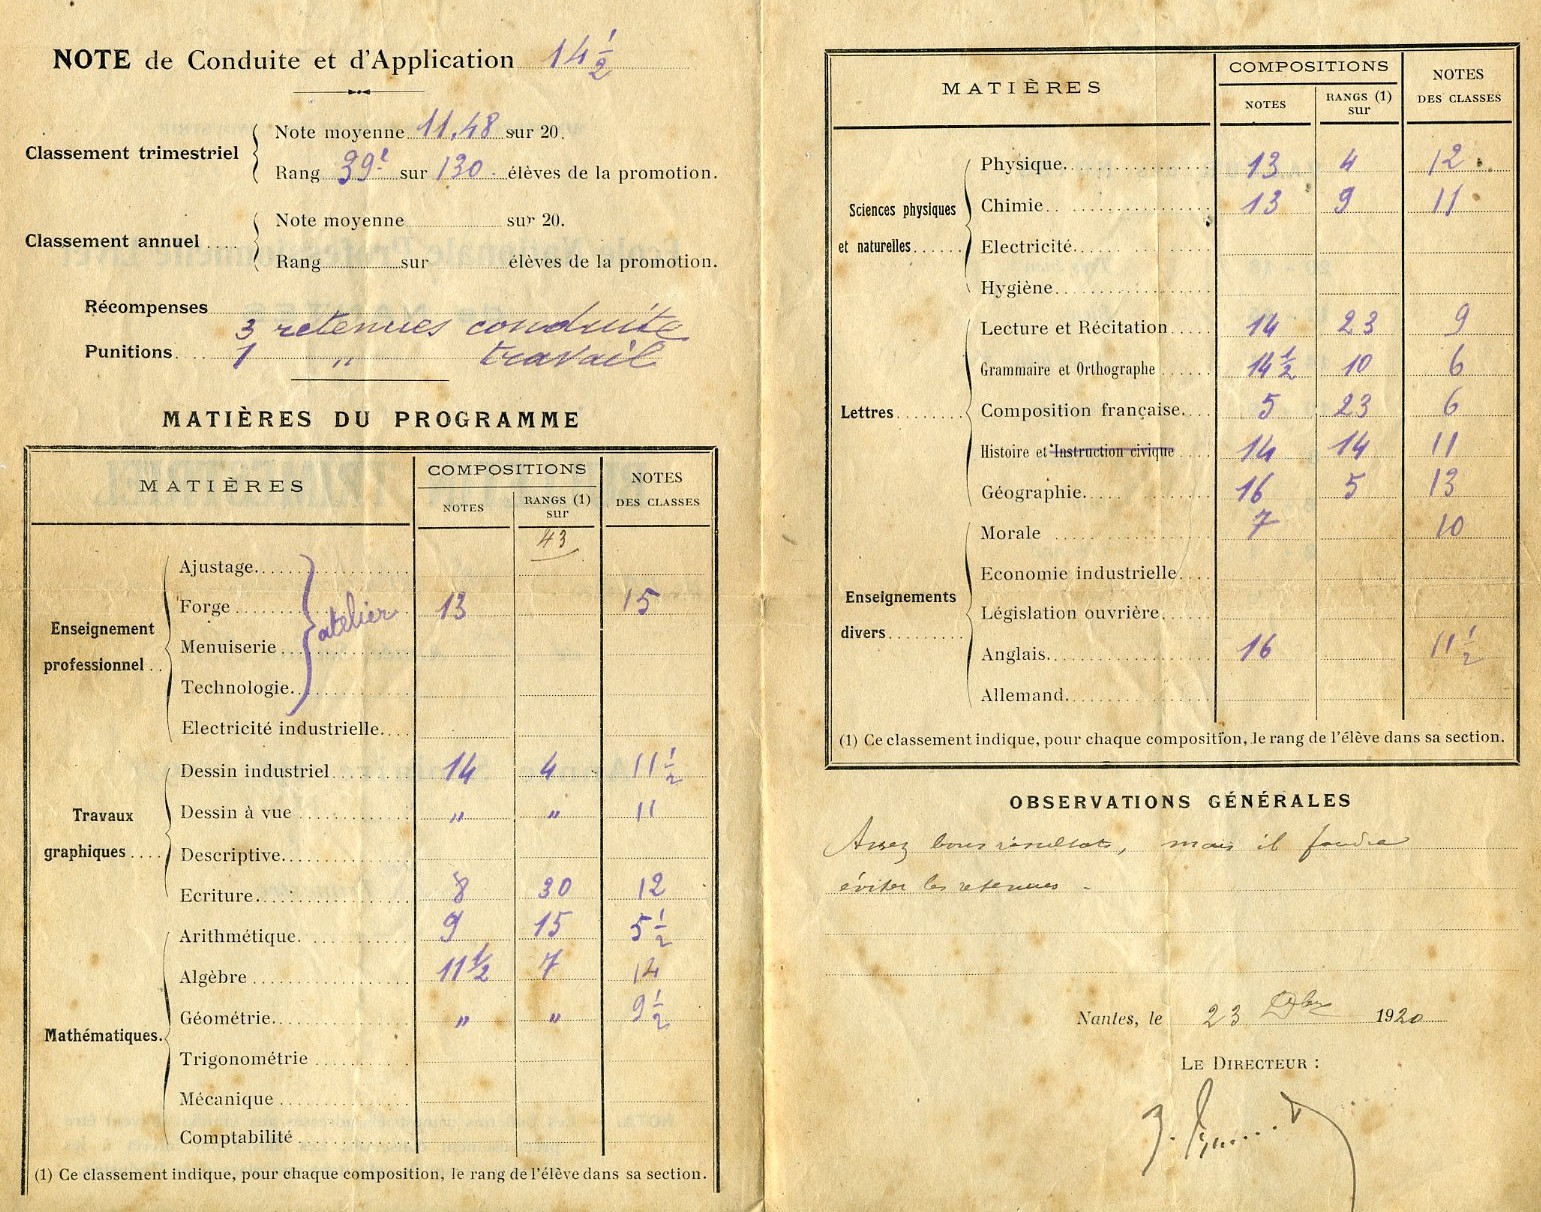 NOTE de Conduite et d'Application 14 1/2
Classement trimestriel
Note moyenne 11,48 sur 20.
Rang 39e sur 130 élèves de la promotion.
Classement annuel ....
Note moyenne sur 20.
Rang sur élèves de la promotion.
Récompenses
3 retenues conduite
Punitions.... 1 " travail
MATIÈRES DU PROGRAMME
MATIÈRES
COMPOSITIONS
NOTES
RANGS (1) sur
NOTES DES CLASSES
43
Enseignement professionnel ..
Ajustage
Forge 13 15
Menuiserie
Technologie
atelier
Electricité industrielle
Travaux graphiques ....
Dessin industriel 14 4 11 1/2
Dessin à vue " " 11
Descriptive
Ecriture 8 30 12
Mathématiques.
Arithmétique 9 15 5 1/2
Algèbre 11 1/2 7
Géométrie " " 9 1/2
Trigonométrie
Mécanique
Comptabilité
(1) Ce classement indique, pour chaque composition, le rang de l'élève dans sa section.
MATIÈRES
COMPOSITIONS
NOTES
RANGS (1) sur
NOTES DES CLASSES
Sciences physiques et naturelles
Physique 13 4 12
Chimie 13 9 11
Electricité
Hygiène
Lettres
Lecture et Récitation 14 23 9
Grammaire et Orthographe 14 1/2 10 6
Composition française 5 23 6
Histoire et Instruction civique 14 14 11
Géographie 16 5 13
Enseignements divers
Morale 7 10
Economie industrielle
Législation ouvrière
Anglais 16 11 1/2
Allemand
(1) Ce classement indique, pour chaque composition, le rang de l'élève dans sa section.
OBSERVATIONS GÉNÉRALES
Assez bons résultats, mais il faudra
éviter les retenues -
Nantes, le 23 Xbre 1920
LE DIRECTEUR :